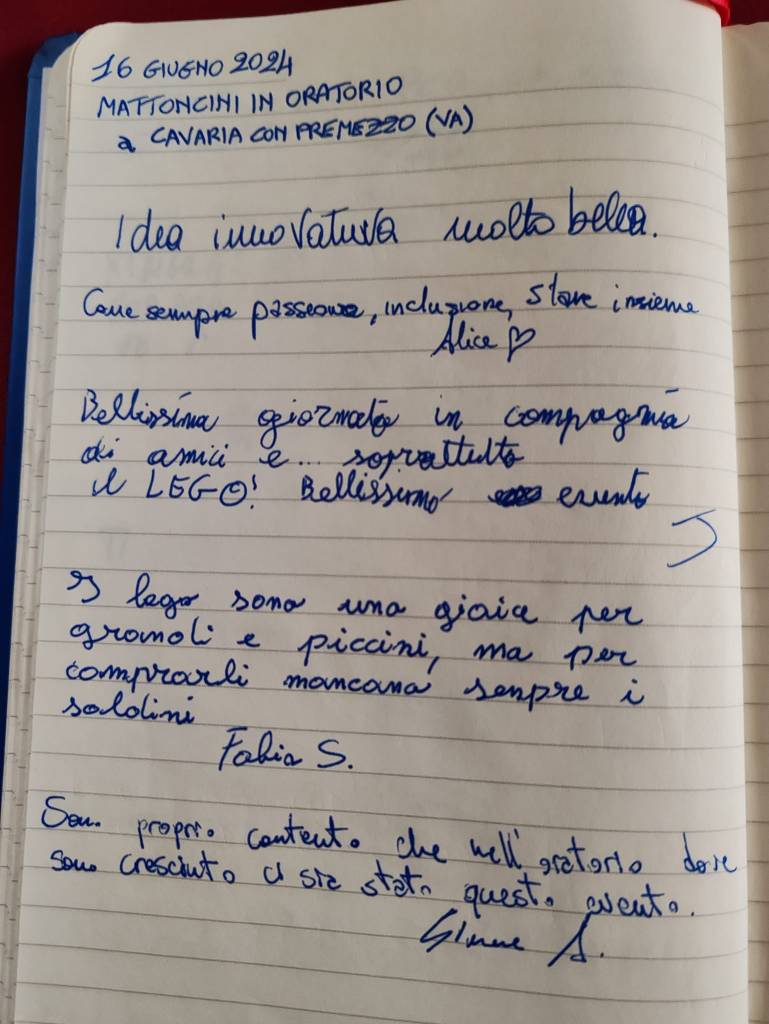 16 GIUGNO 2024
MATTONCINI IN ORATORIO
a CAVARIA CON PREMEZZO (VA)
Idea innovativa molto bella.
Come sempre passione, inclusione, stare insieme
Alice ♡
Bellissima giornata in compagnia
di amici e... soprattutto
il LEGO! Bellissimo evento
I lego sono una gioia per
grandi e piccini, ma per
comprarli mancano senpre i
soldini
Fabio S.
Sono proprio contento che nell'oratorio dove
sono cresciuto ci sia stato questo evento.
Simone A.